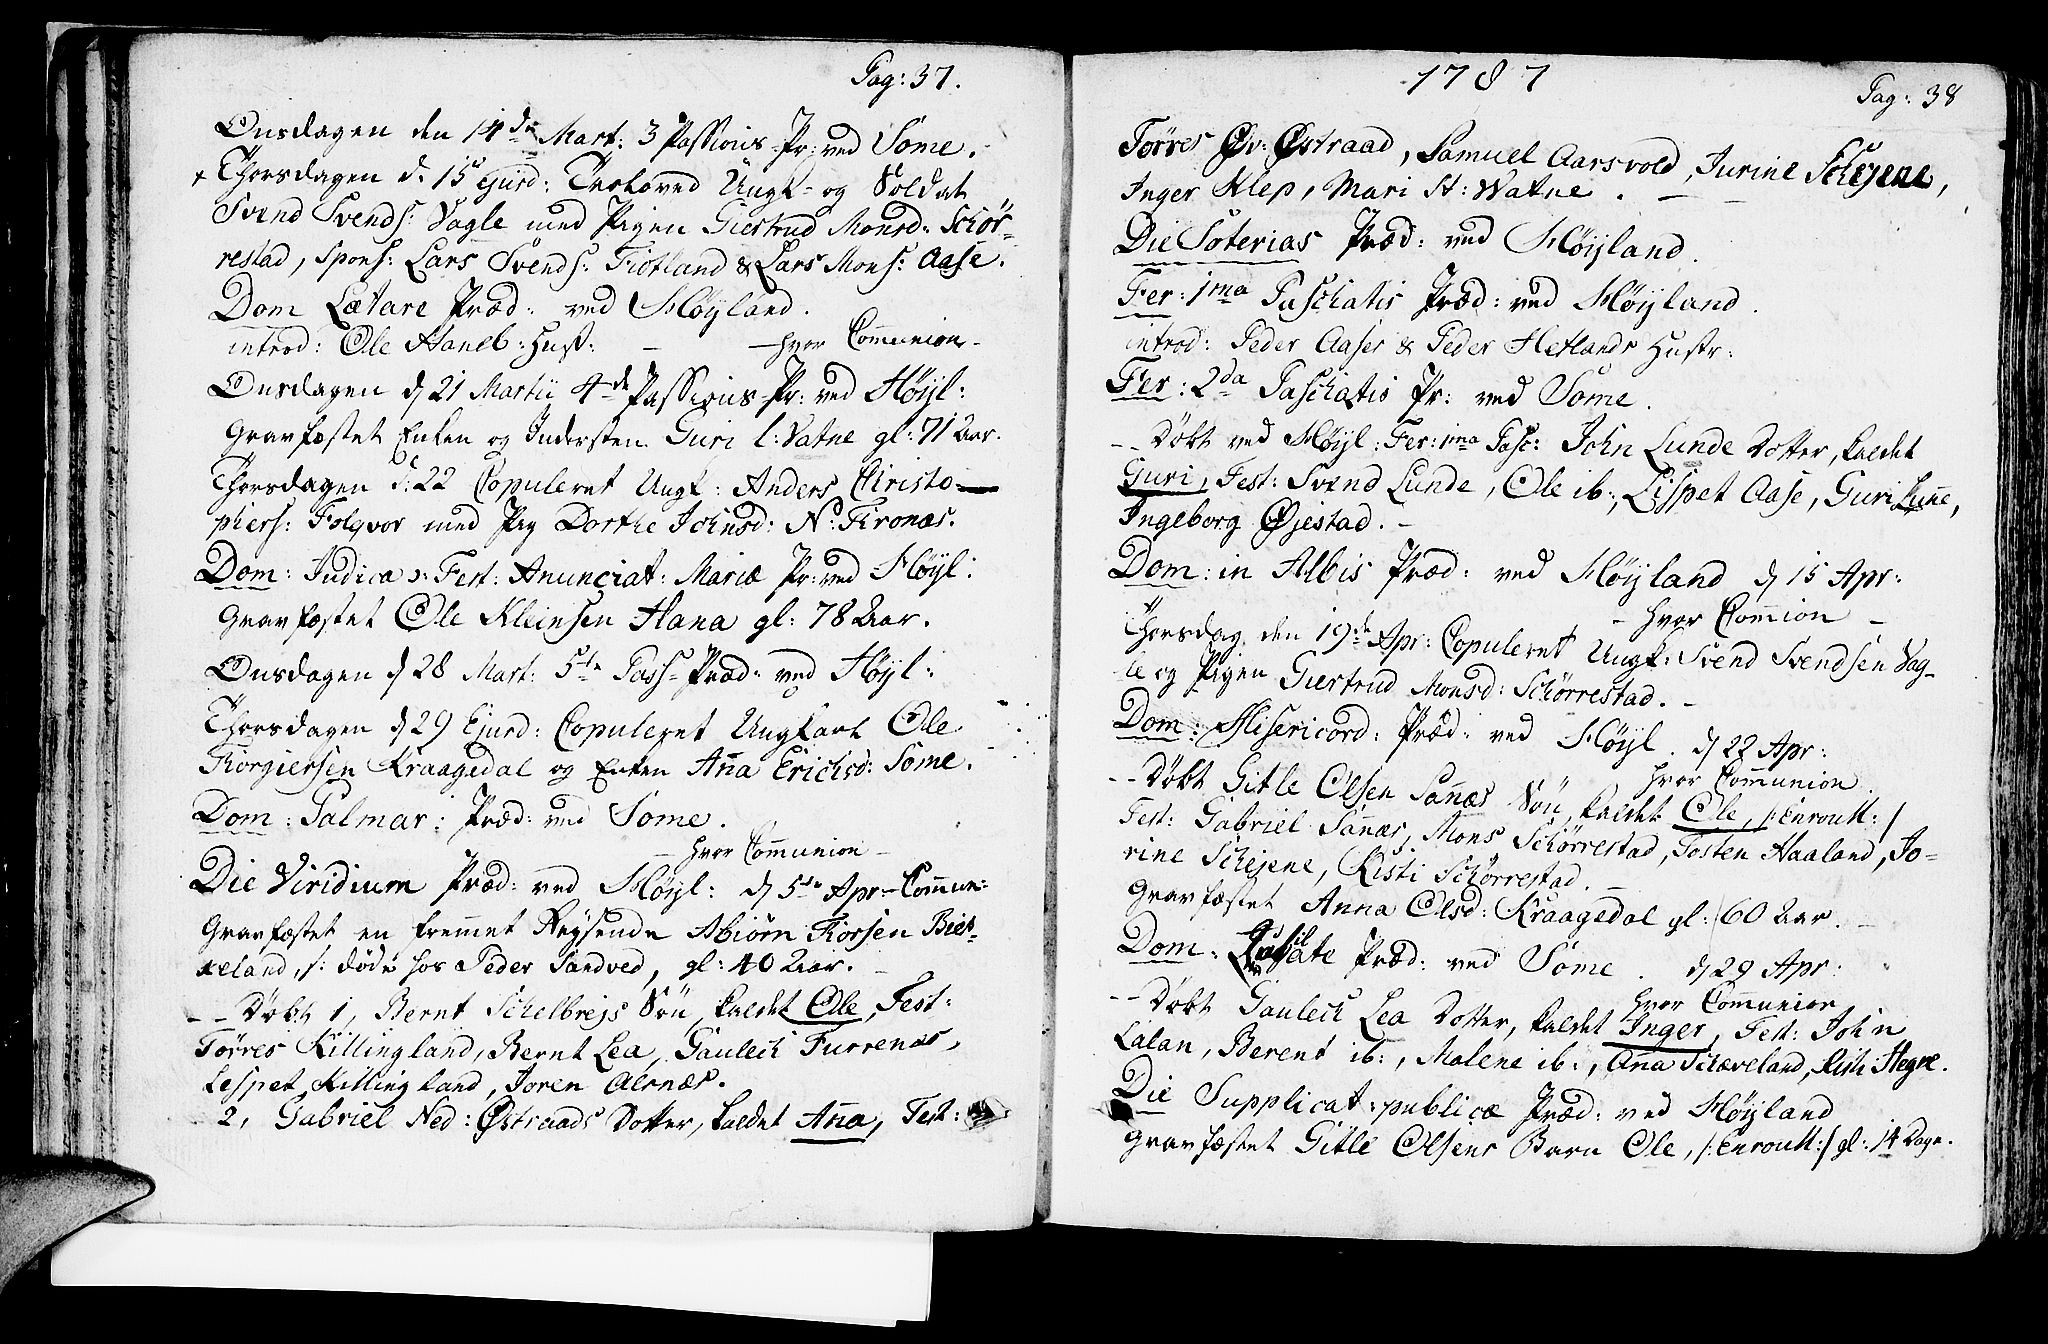 Pag: 37.
Onsdagen den 14de Mart: 3 Passions-Pr: ved Some.
+ Thorsdagen d: 15 Ejusd: Troloved Ungk- og Soldat
Svend Svends: Vagle med Pigen Giertrud Monsd: Schör-
restad, Spons: Lars Svends: Tiotland & Lars Mons: Aase.
Dom Lætare Præd: ved Höyland.
introd: Ole Haneb: Hust: – – hvor Communion –
Onsdagen d 21 Martii 4de Passions-Pr: ved Höyl:
Gravfæstet Enken og Indersten Guri l: Vatne gl: 71 Aar.
Thorsdagen d: 22 Copuleret Ungk: Anders Christo-
phers: Folqvor med Pig Dorthe Johnsd: N: Tronæs.
Dom: Judica ɔ: Fest: Anunciat: Mariæ Pr: ved Höyl:
Gravfæstet Ole Kleinsen Hana gl: 78 Aar.
Onsdagen d 28 Mart: 5te Pass-Præd: ved Höyl:
Thorsdagen d 29 Ejusd: Copuleret Ungkarl Ole
Torgiersen Kraagedal og Enken Ana Erichsd: Some.
Dom: Palmar: Præd: ved Some.
– hvor Communion –
Die Viridium Præd: ved Höyl: d 5te Apr: – Commun:
Gravfæstet en fremmet Reysende Abiörn Torsen Bier-
keland, /: döde hos Peder Sandved, gl: 40 Aar. –
– – Döbt 1, Bernt Schelbrejs Sön, kaldet Ole, Test:
Törres Killingland, Bernt Lea, Gaulech Furrenæs,
Lespet Killingland, Joren Alsnæs.
2, Gabriel Ned: Östraads Dotter, kaldet Ana, Test:
1787
Pag: 38
Törres Öv: Östraad, Samuel Aarsvold, Jurine Schejene,
Inger Klep, Mari St: Watne. – –
Die Soterias Præd: ved Höyland.
Fer: 1ma Paschatis Præd: ved Höyland.
introd: Peder Aases & Peder Hetlands Hustr:
Fer: 2da Paschatis Pr: ved Some.
– – Döbt ved Höyl: Fer: 1ma Pasc: John Lunde Dotter, kaldet
Guri, Test: Svend Lunde, Ole ib:, Lispet Aase, Guri Lune,
Ingeborg Öjestad. –
Dom: in Albis Præd: ved Höyland d 15 Apr:
– hvor Comion –
Thorsdag den 19de Apr: Copuleret Ungk: Svend Svendsen Vag-
le og Pigen Giertrud Monsd: Schörrestad. –
Dom: Misericord: Præd: ved Höyl. d 22 Apr:
hvor Communion.
– – Döbt Gitle Olsen Sanæs Sön, kaldet Ole, /: Enroull :/
Test: Gabriel Sanæs, Mons Schörrestad, Tosten Haaland, Jo-
rine Schejene, Kisti Schörrestad. –
Gravfæstet Anna Olsd: Kraagedal gl: 60 Aar. –
Dom: Jubilate Præd: ved Some. d 29 Apr:
hvor Communion
– – Döbt Gaulech Lea Dotter, kaldet Inger, Test: John
Lalan, Berent ib:, Malene ib:, Ana Schæveland, Kisti Hogne.
Die Supplicat: publicæ Præd: ved Höyland
Gravfæstet Gitle Olsens Barn Ole, /: Enroull :/ gl: 14 Dage.